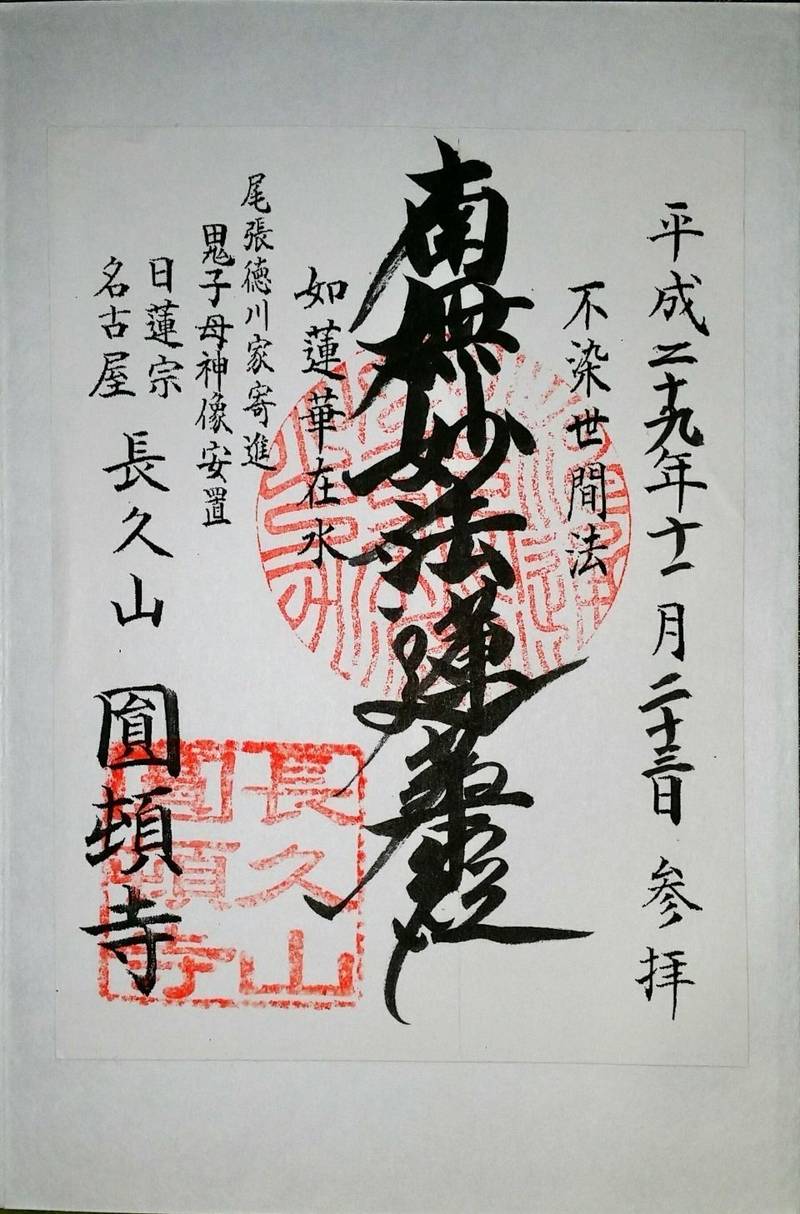 平成二十九年十一月二十三日 参拝
不染世間法
南無妙法蓮華経
如蓮華在水
尾張徳川家寄進
鬼子母神像安置
日蓮宗
名古屋
長久山
圓頓寺
長久山
圓頓寺